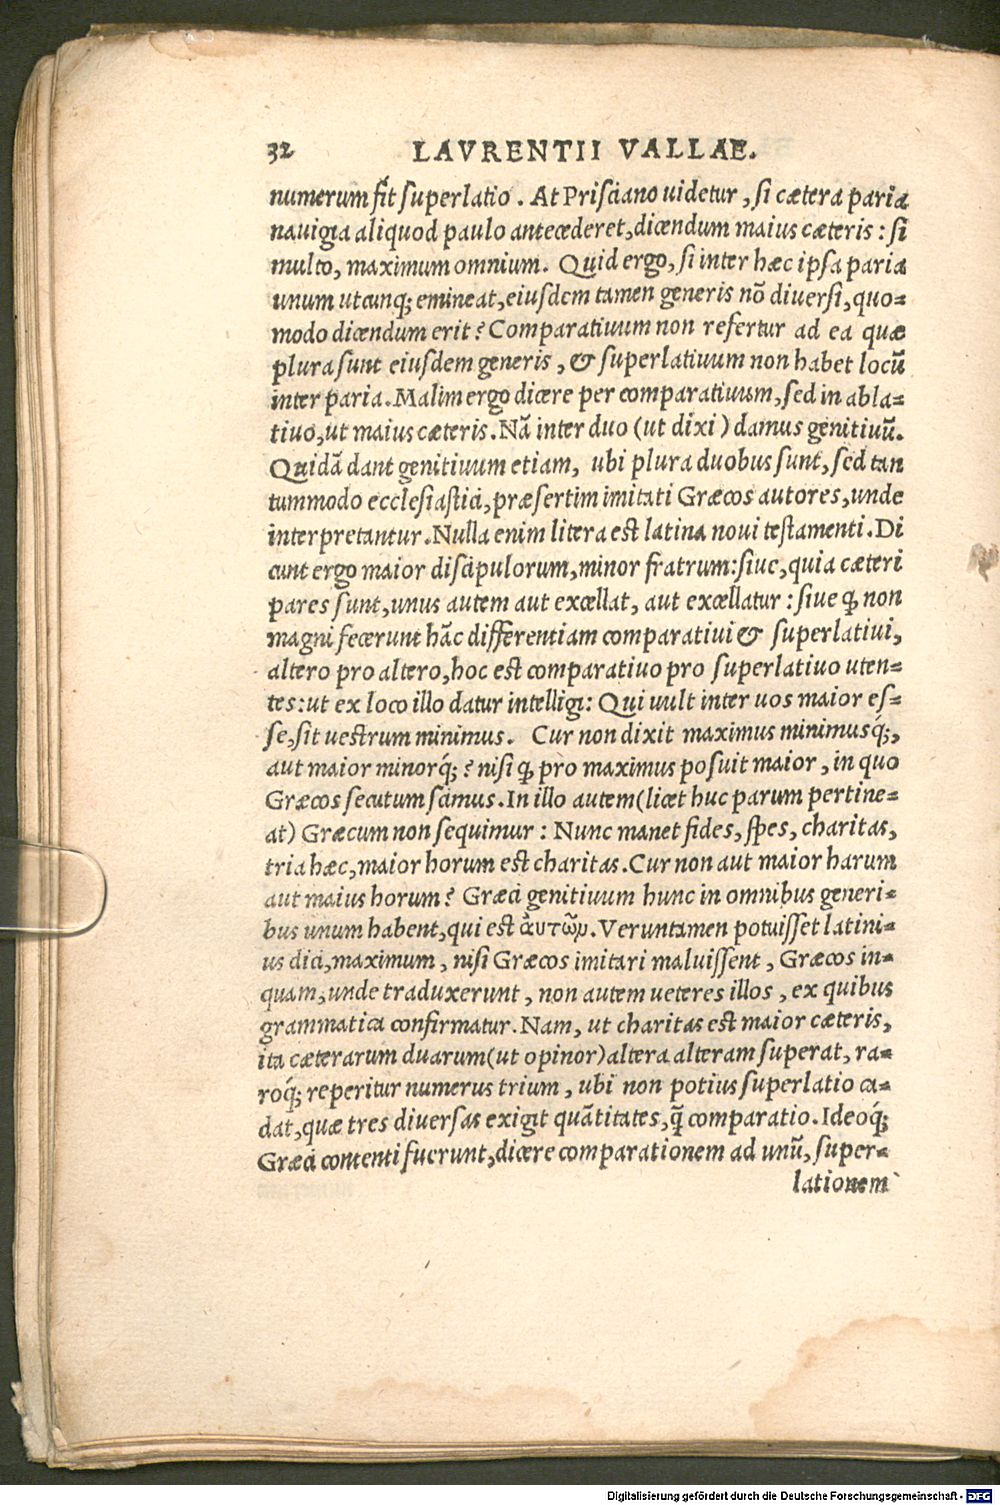 32 LAVRENTII VALLAE.
numerum fit superlatio. At Prisciano uidetur, si cætera paria
nauigia aliquod paulo antecederet, dicendum maius cæteris: si
multo, maximum omnium. Quid ergo, si inter hæc ipsa paria
unum utcunq; emineat, eiusdem tamen generis nō diuersi, quo=
modo dicendum erit? Comparatiuum non refertur ad ea quæ
plura sunt eiusdem generis, & superlatiuum non habet locū
inter paria. Malim ergo dicere per comparatiuum, sed in abla=
tiuo, ut maius cæteris. Nā inter duo (ut dixi) damus genitiuū.
Quidā dant genitiuum etiam, ubi plura duobus sunt, sed tan
tummodo ecclesiastici, præsertim imitati Græcos autores, unde
interpretantur. Nulla enim litera est latina noui testamenti. Di
cunt ergo maior discipulorum, minor fratrum: siue, quia cæteri
pares sunt, unus autem aut excellat, aut excellatur: siue ꝙ non
magni fecerunt hāc differentiam comparatiui & superlatiui,
altero pro altero, hoc est comparatiuo pro superlatiuo uten=
tes: ut ex loco illo datur intelligi: Qui uult inter uos maior es=
se, sit uestrum minimus. Cur non dixit maximus minimusq́;,
aut maior minorq́;? nisi ꝙ pro maximus posuit maior, in quo
Græcos secutum scimus. In illo autem (licet huc parum pertine=
at) Græcum non sequimur: Nunc manet fides, spes, charitas,
tria hæc, maior horum est charitas. Cur non aut maior harum
aut maius horum? Græci genitiuum hunc in omnibus generi=
bus unum habent, qui est ἀυτῶν. Veruntamen potuisset latini=
us dici, maximum, nisi Græcos imitari maluissent, Græcos in=
quam, unde traduxerunt, non autem ueteres illos, ex quibus
grammatica confirmatur. Nam, ut charitas est maior cæteris,
ita cæterarum duarum (ut opinor) altera alteram superat, ra=
roq́; reperitur numerus trium, ubi non potius superlatio ca=
dat, quæ tres diuersas exigit quātitates, q̄ comparatio. Ideoq́;
Græci contenti fuerunt, dicere comparationem ad unū, super=
lationem
Digitalisierung gefördert durch die Deutsche Forschungsgemeinschaft - DFG